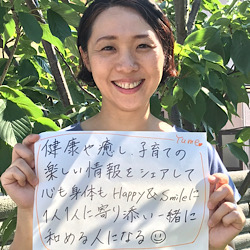 Yume
健康や癒し、子育ての
楽しい情報をシェアして
心も身体も Happy & Smileに
1人1人に寄り添い一緒に
和める人になる☺